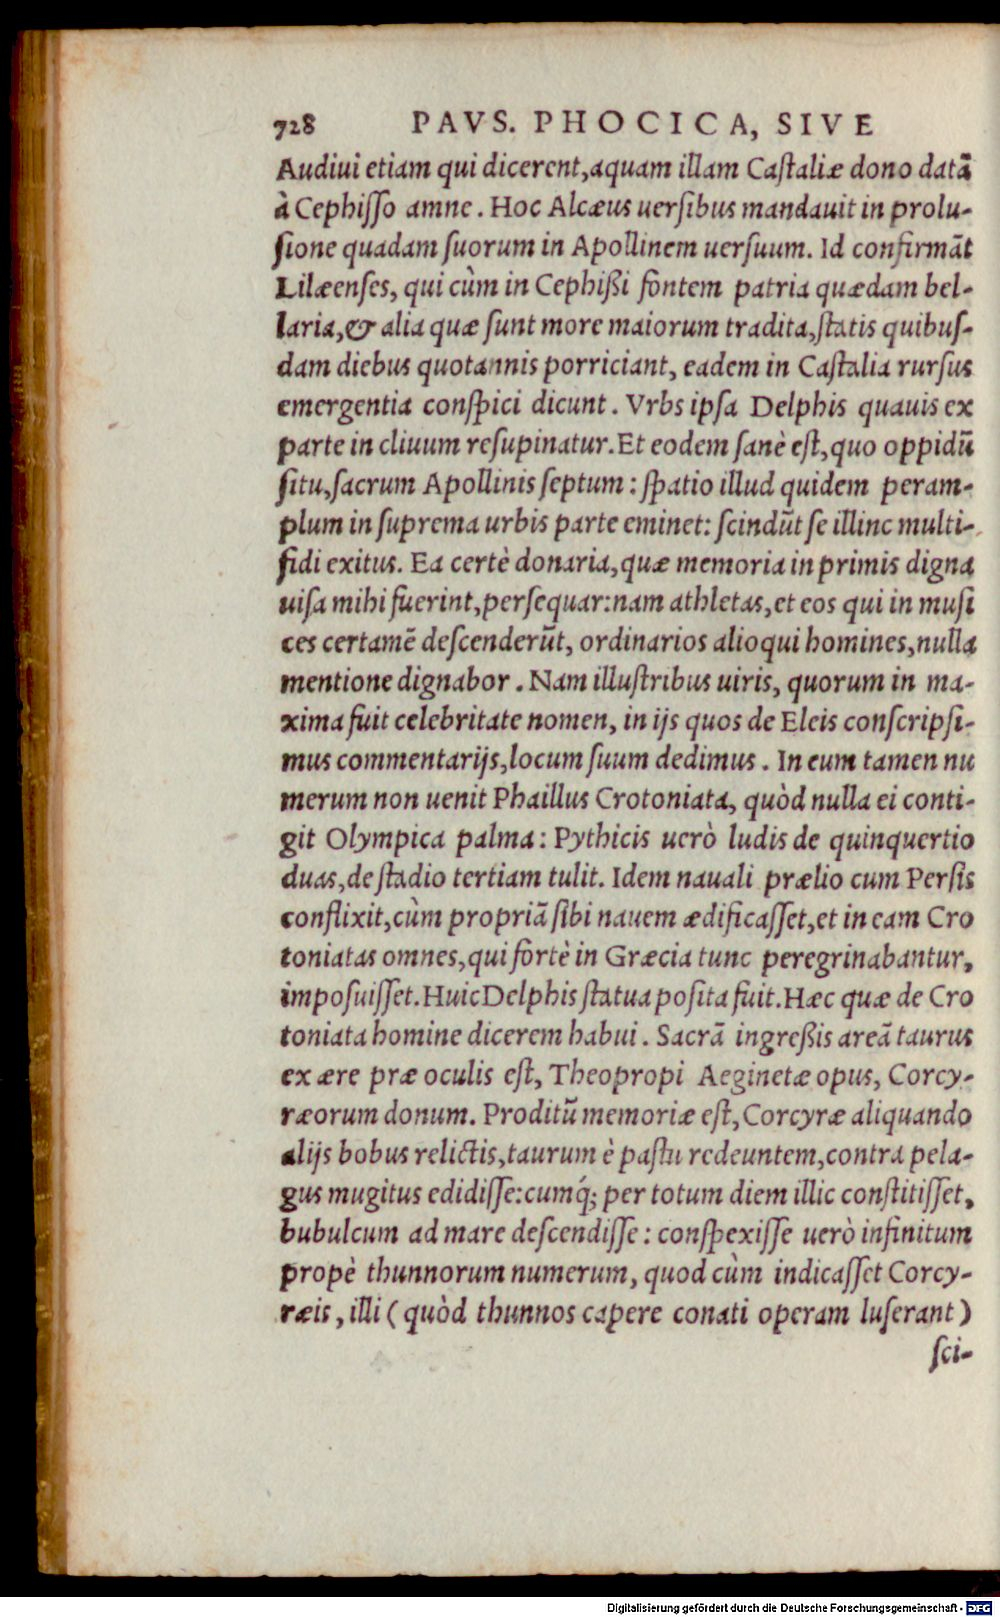 728 PAVS. PHOCICA, SIVE
Audiui etiam qui dicerent,aquam illam Caſtaliæ dono datã
à Cephiſſo amne. Hoc Alcæus uerſibus mandauit in prolu-
ſione quadam ſuorum in Apollinem uerſuum. Id confirmãt
Lilæenſes, qui cùm in Cephißi fontem patria quædam bel-
laria,& alia quæ ſunt more maiorum tradita,ſtatis quibuſ-
dam diebus quotannis porriciant, eadem in Caſtalia rurſus
emergentia conſpici dicunt. Vrbs ipſa Delphis quauis ex
parte in cliuum reſupinatur. Et eodem ſanè eſt,quo oppidũ
ſitu,ſacrum Apollinis ſeptum: ſpatio illud quidem peram-
plum in ſuprema urbis parte eminet: ſcindũt ſe illinc multi-
fidi exitus. Ea certè donaria,quæ memoria in primis digna
uiſa mihi fuerint,perſequar:nam athletas,et eos qui in muſi
ces certamẽ deſcenderũt, ordinarios alioqui homines,nulla
mentione dignabor. Nam illuſtribus uiris, quorum in ma-
xima fuit celebritate nomen, in ijs quos de Eleis conſcripſi-
mus commentarijs,locum ſuum dedimus. In eum tamen nu
merum non uenit Phaillus Crotoniata, quòd nulla ei conti-
git Olympica palma: Pythicis uerò ludis de quinquertio
duas,de ſtadio tertiam tulit. Idem nauali prælio cum Perſis
conflixit,cùm propriã ſibi nauem ædificaſſet,et in eam Cro
toniatas omnes,qui fortè in Græcia tunc peregrinabantur,
impoſuiſſet. Huic Delphis ſtatua poſita fuit. Hæc quæ de Cro
toniata homine dicerem habui. Sacrã ingreßis areã taurus
ex ære præ oculis eſt, Theopropi Aeginetæ opus, Corcy-
ræorum donum. Proditũ memoriæ eſt, Corcyræ aliquando
alijs bobus relictis,taurum è paſtu redeuntem,contra pela-
gus mugitus edidiſſe:cumq́; per totum diem illic conſtitiſſet,
bubulcum ad mare deſcendiſſe: conſpexiſſe uerò infinitum
propè thunnorum numerum, quod cùm indicaſſet Corcy-
ræis, illi (quòd thunnos capere conati operam luſerant)
ſci-
Digitalisierung gefördert durch die Deutsche Forschungsgemeinschaft - DFG